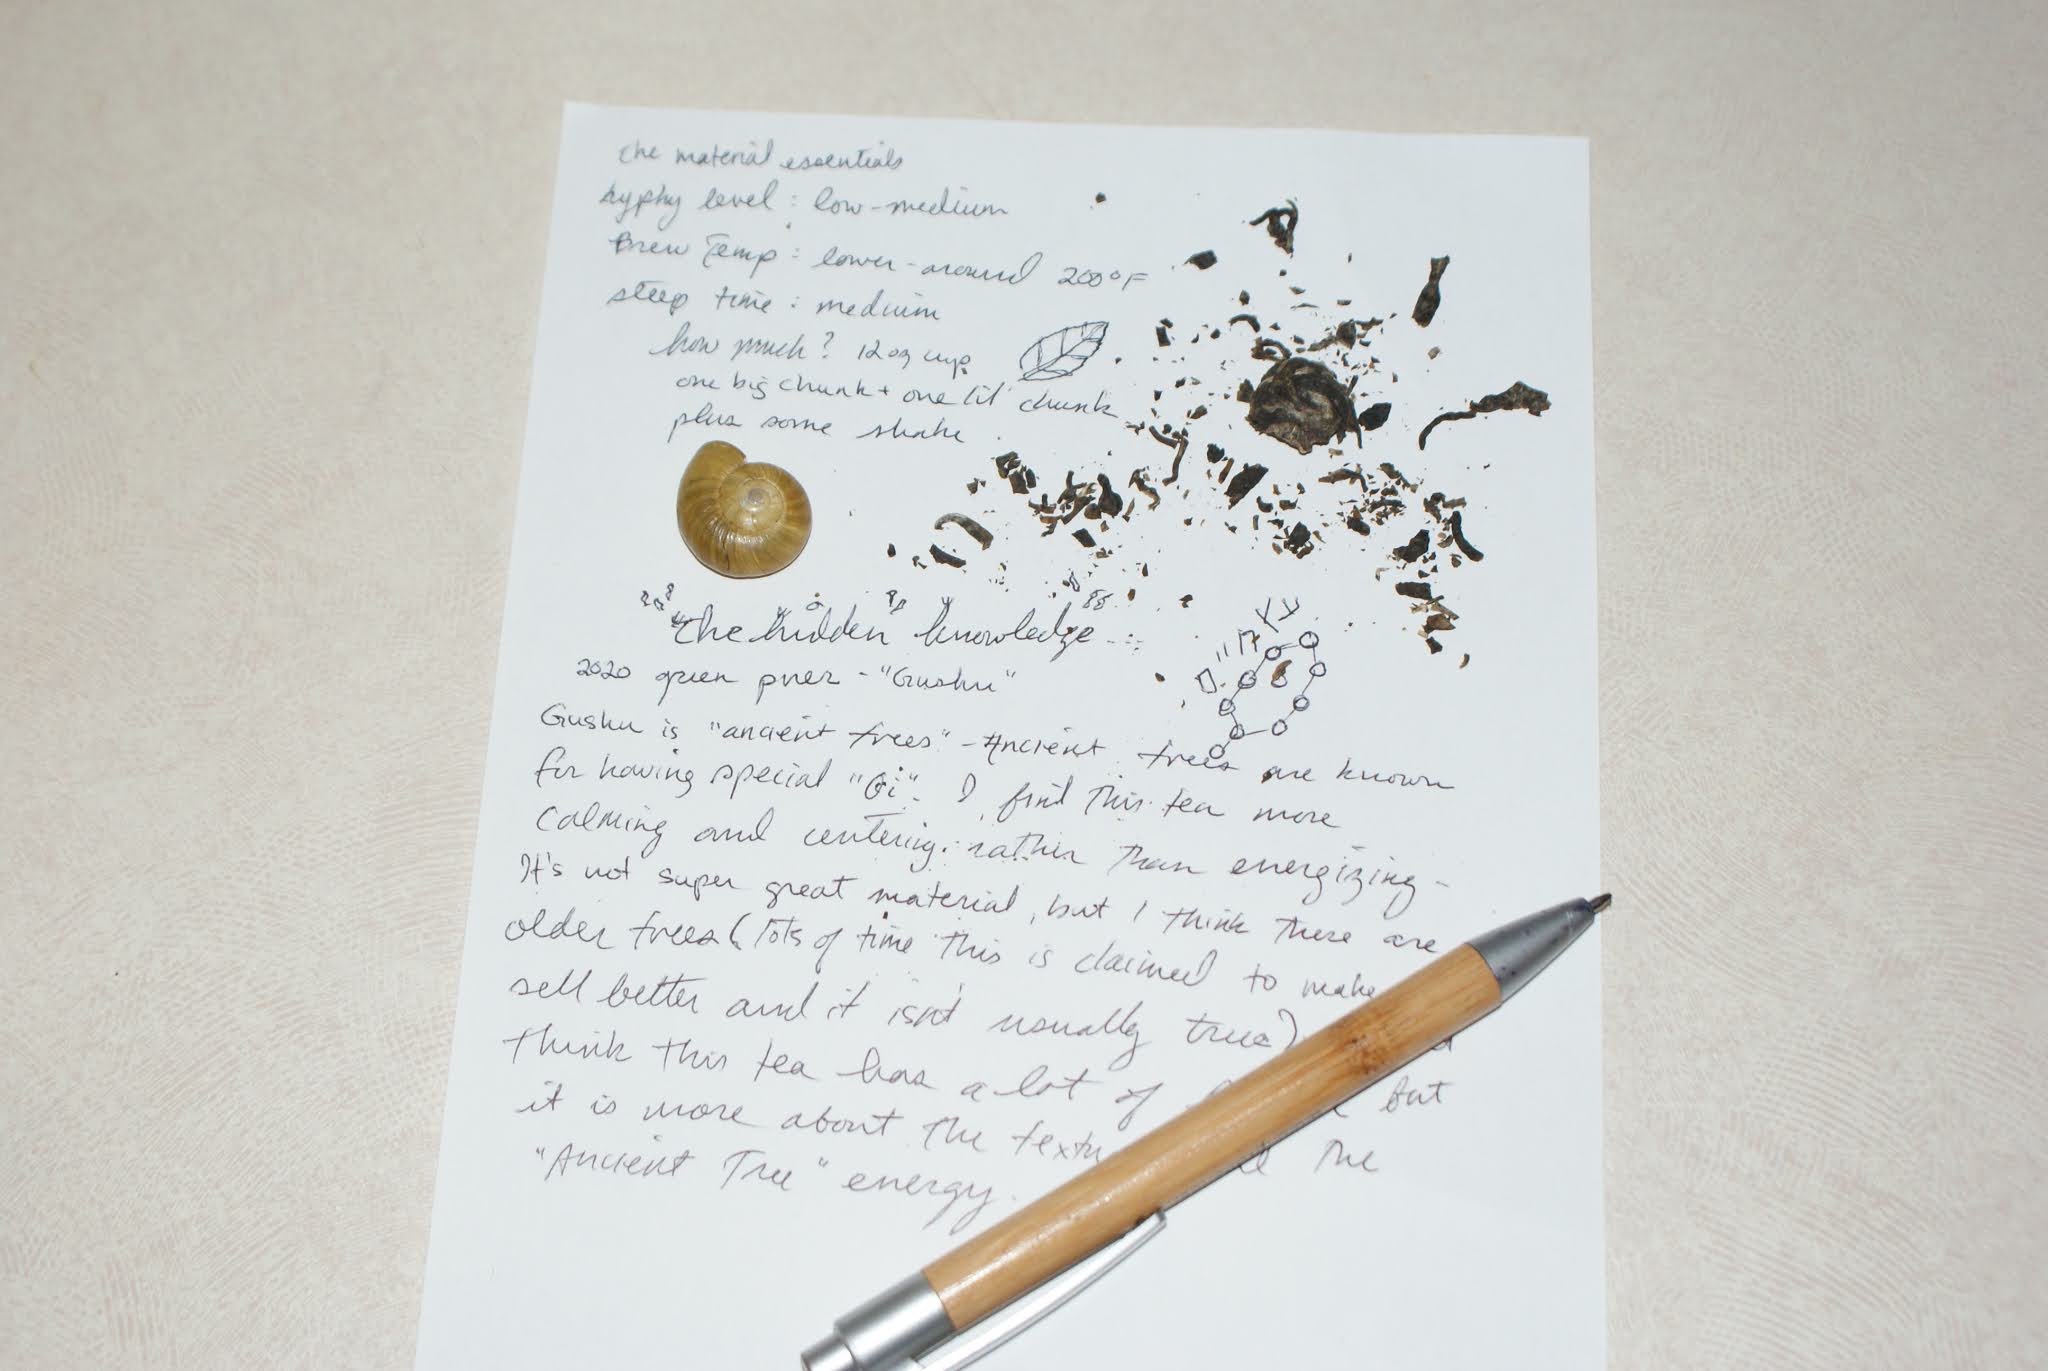 the material essentials
hyphy level : low-medium
Brew Temp : lower-around 200°F
steep time : medium
how much? 12oz cup
one big chunk + one lil' chunk
plus some shake
the hidden knowledge
2020 green puer - "Gushu"
Gushu is "ancient trees" - Ancient trees are known
for having special "Qi". I find this tea more
calming and centering. rather than energizing -
It's not super great material, but I think these are
older trees (lots of time this is claimed to make
sell better and it isn't usually true)
think this tea has a lot of but
it is more about the the
"Ancient Tree" energy.